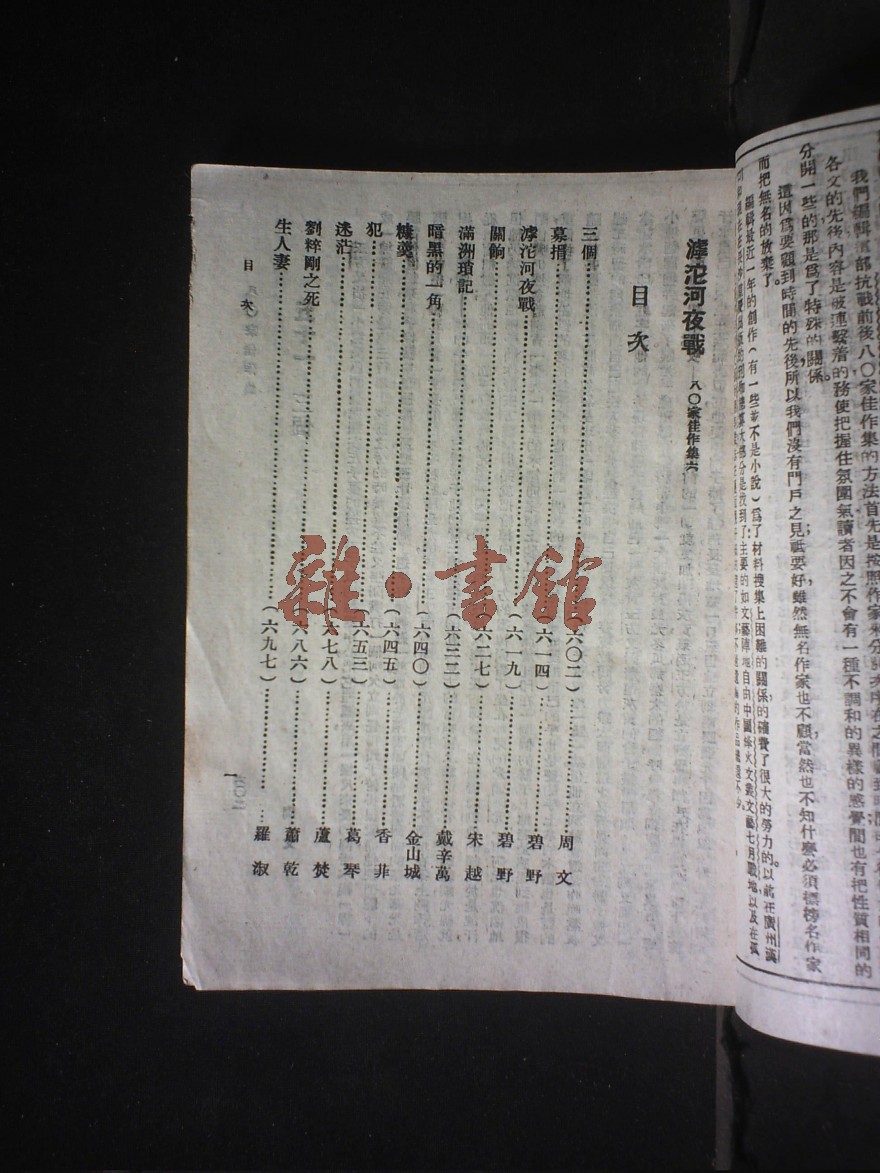 我們編輯這部抗戰前後八〇家佳作集的方法首先是按照作家來分
各文的先後內容是被連繫着的務使把握住氛圍氣讀者因之不會有一種不調和的異樣的感覺間也有把性質相同的
分開一些的那是爲了特殊的關係。
這因爲要顧到時間的先後所以我們沒有門戶之見祗要好雖然無名作家也不顧當然也不知什麽必須標榜名作家
而把無名的放棄了。
編輯最近一年的創作(有一些並不是小說)爲了材料搜集上困難的關係的確費了很大的勞力的。以前在廣州漢
滹沱河夜戰 八〇家佳作集六
目次
三個 (六〇二) 周文
募捐 (六一四) 碧野
滹沱河夜戰 (六一九) 碧野
關餉 (六二七) 宋越
滿洲瑣記 (六三二) 戴辛萬
暗黑的一角 (六四〇) 金山城
糠羹 (六四五) 香菲
犯 (六五三) 葛琴
迷茫 (六七八) 蘆焚
劉粹剛之死 (六八六) 蕭乾
生人妻 (六九七) 羅淑
目次
一
雜·書館